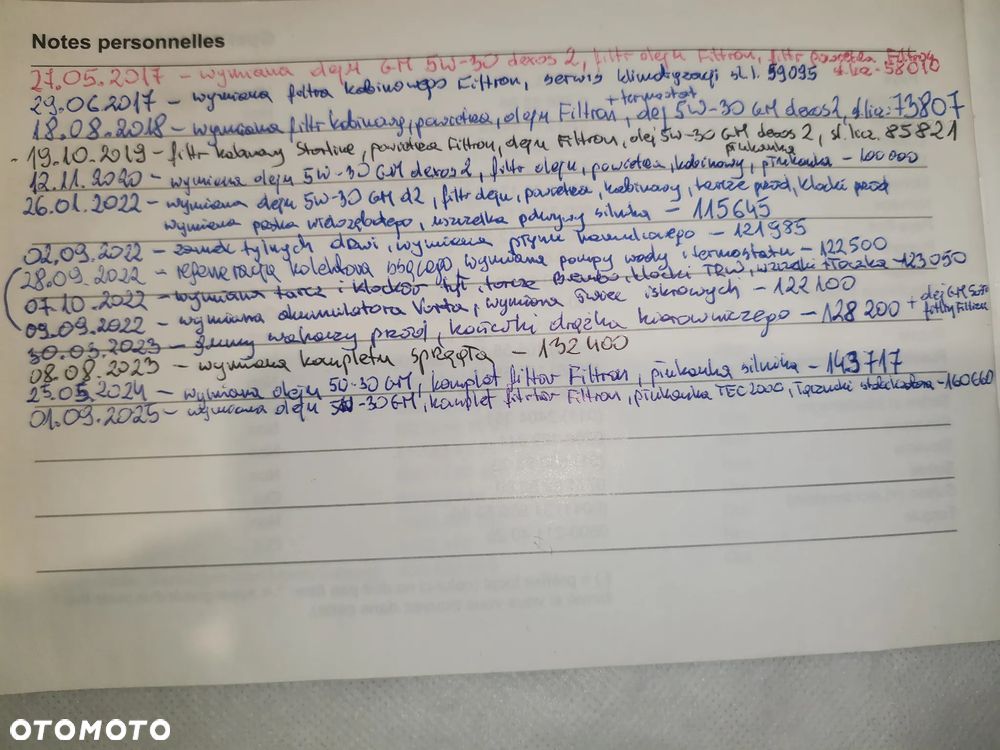 Notes personnelles
27.05.2017 - wymiana oleju GM 5W-30 dexos 2, filtr oleju Filtron, filtr powietrza Filtron
st.licz - 58010
29.06.2017 - wymiana filtra kabinowego Filtron, serwis klimatyzacji st.l. 59095
+ termostat
18.08.2018 - wymiana filtr kabinowy, powietrza, oleju Filtron, olej 5W-30 GM dexos2, st.licz: 73807
19.10.2019 - filtr kabinowy Starline, powietrza Filtron, oleju Filtron, olej 5W-30 GM dexos 2, st.licz. 85821
płukanka
12.11.2020 - wymiana oleju 5W-30 GM dexos2, filtr oleju, powietrza, kabinowy, płukanka - 100 000
26.01.2022 - wymiana oleju 5W-30 GM d2, filtr oleju, powietrza, kabinowy, tarcze przód, klocki przód
wymiana paska wielozębdego, uszczelka pokrywy silnika - 115645
02.09.2022 - zamek tylnych drzwi, wymiana płynu hamulcowego - 121985
28.09.2022 - regeneracja kolektora ssącego, wymiana pompy wody i termostatu - 122500
07.10.2022 - wymiana tarcz i klocków tył, tarcze Brembo, klocki TRW, uszczelki + łączka - 123050
09.09.2022 - wymiana akumulatora Varta, wymiana świec iskrowych - 122100
30.03.2023 - gumy wahaczy przód, końcówki drążka kierowniczego - 128 200 + olej GM 5W30
filtry Filtron
08.08.2023 - wymiana kompletu sprzęgła - 132 400
25.05.2024 - wymiana oleju 50-30 GM, komplet filtrów Filtron, płukanka silnika - 143717
01.09.2025 - wymiana oleju 5W-30 GM, komplet filtrów Filtron, płukanka TEC2000, łączniki stabilizatora - 160660
OTOMOTO